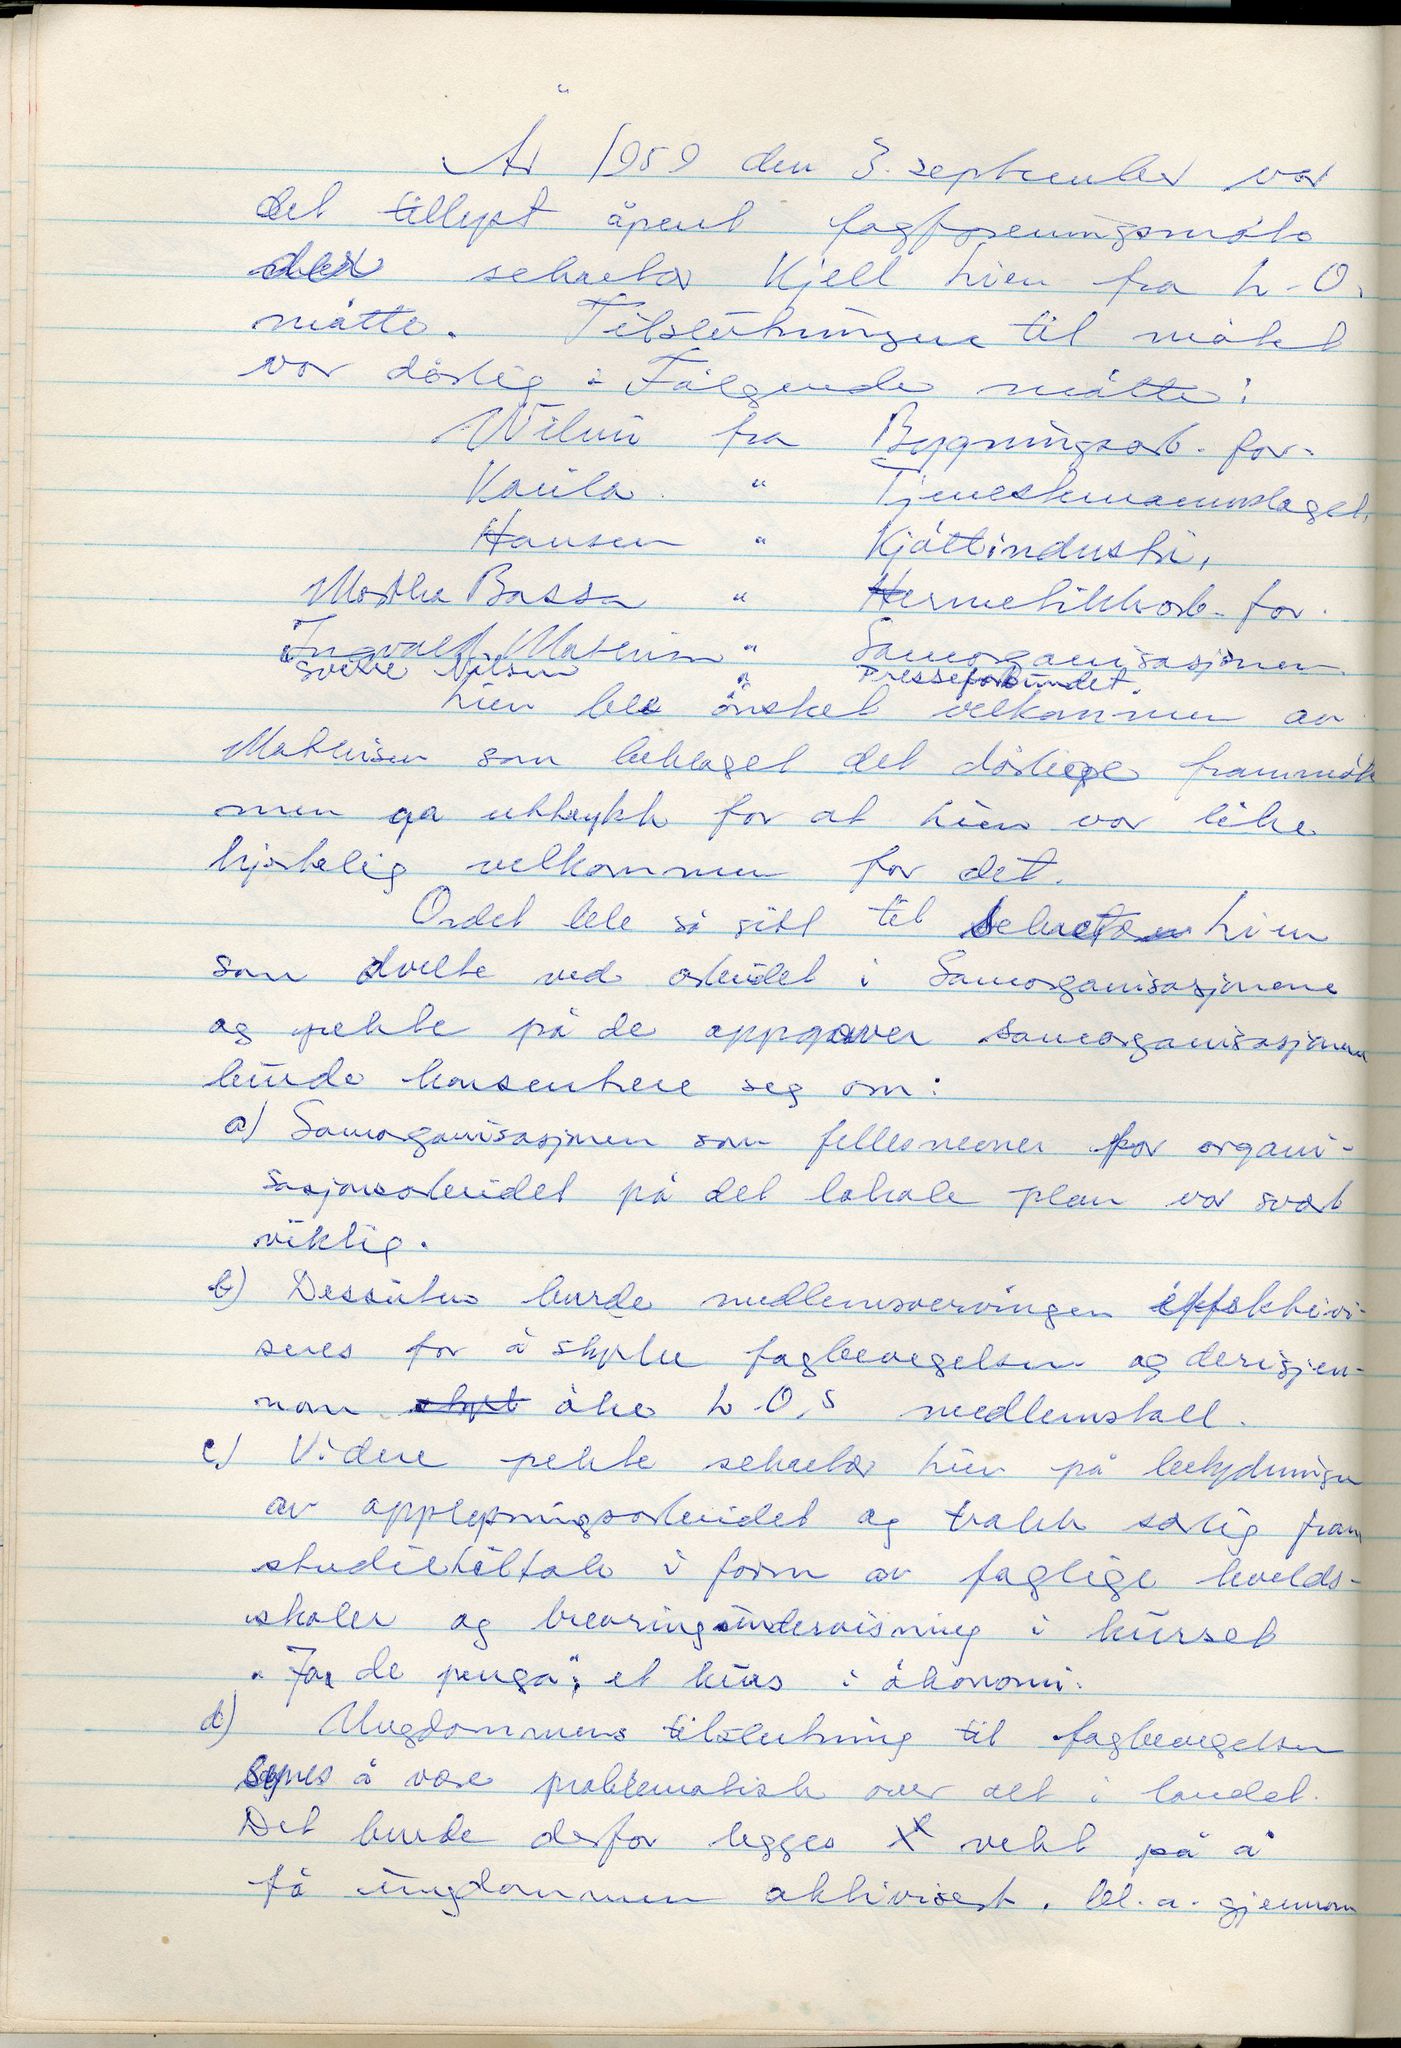 År 1959 den 3. september var
det tillyst åpent fagforeningsmøte
der sekretær Kjell Lien fra L.O.
møtte. Tilslutningen til møtet
var dårlig. Følgende møtte:
fra Bygningsarb. for.
" Tjenestemannslaget.
Hansen " Kjøttindustri,
Martha Bassa " Hermetikkarb. for.
Ingvald Mathisen " Samorganisasjonen
Sverre Nilsen " Presseforbundet.
Lien ble ønsket velkommen av
Mathisen som beklaget det dårlige frammøte
men ga uttrykk for at Lien var like
hjertelig velkommen for det.
Ordet ble så gitt til sekretær Lien
som dvelte ved arbeidet i Samorganisasjonene
og pekte på de oppgaver samorganisasjonene
burde konsentrere seg om:
a) Samorganisasjonen som fellesnevner for organi-
sasjonsarbeidet på det lokale plan var svært
viktig.
b) Dessuten burde medlemsvervingen effektivi-
seres for å styrke fagbevegelsen og derigjen-
nom styrt øke L.O,s medlemstall.
c) Videre pekte sekretær Lien på betydningen
av opplysningsarbeidet og trakk særlig fram
studietiltak i form av faglige kvelds-
skoler og brevringundervisning i kurset
"Før de penga", et kurs i økonomi.
d) Ungdommens tilslutning til fagbevegelsen
synes å være problematisk over alt i landet.
Det burde derfor legges vekt på å
få ungdommen aktivisert. bl.a. gjennom